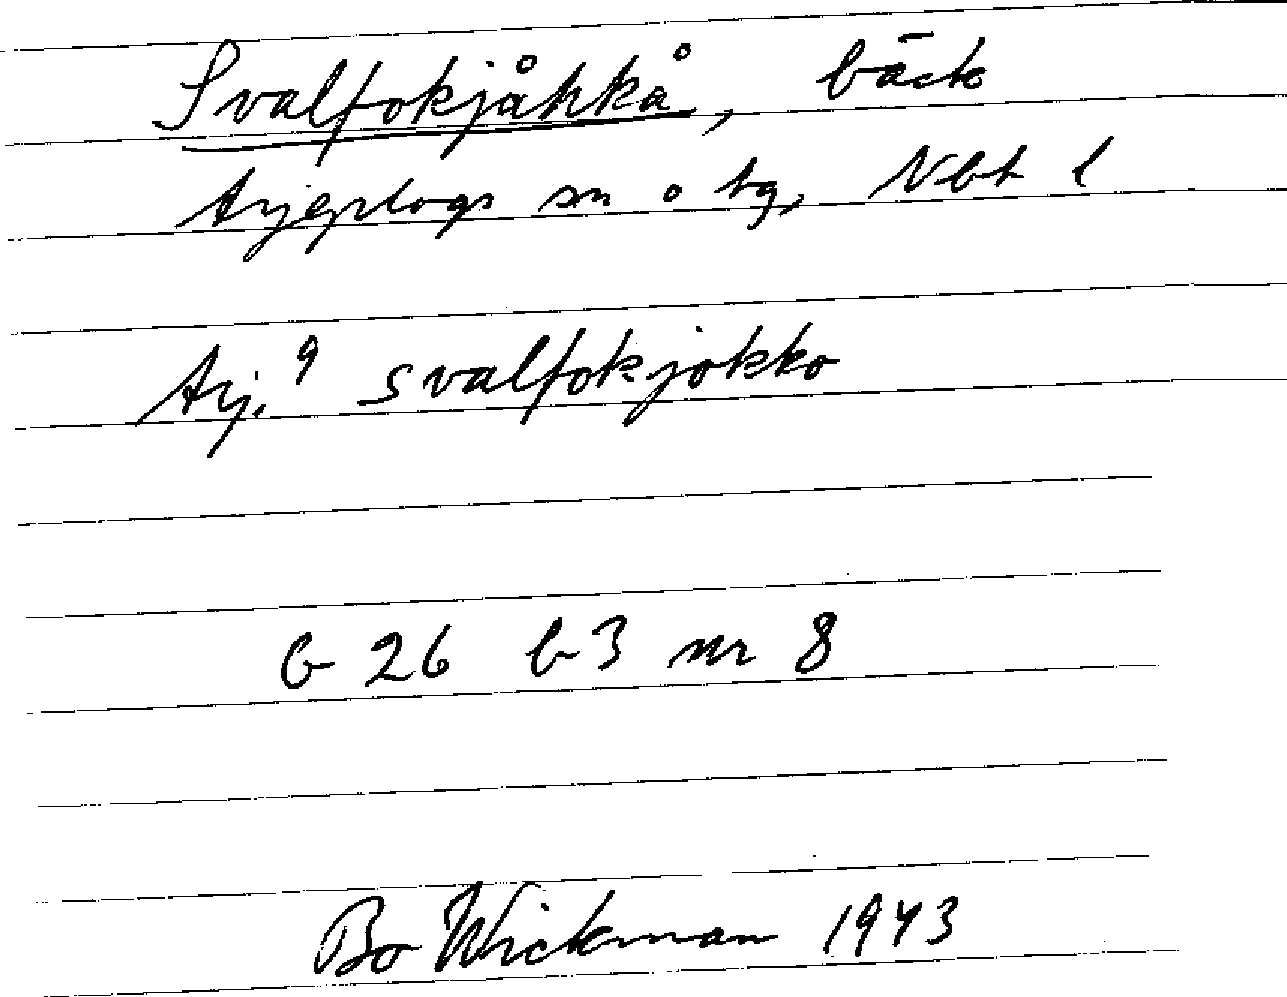 Svalfokjåhkå, bäck
Arjeplogs sn o tg, Nbt l
Arj. 9 svalfokjokko
G 26 b 3 nr 8
Bo Wickman 1943